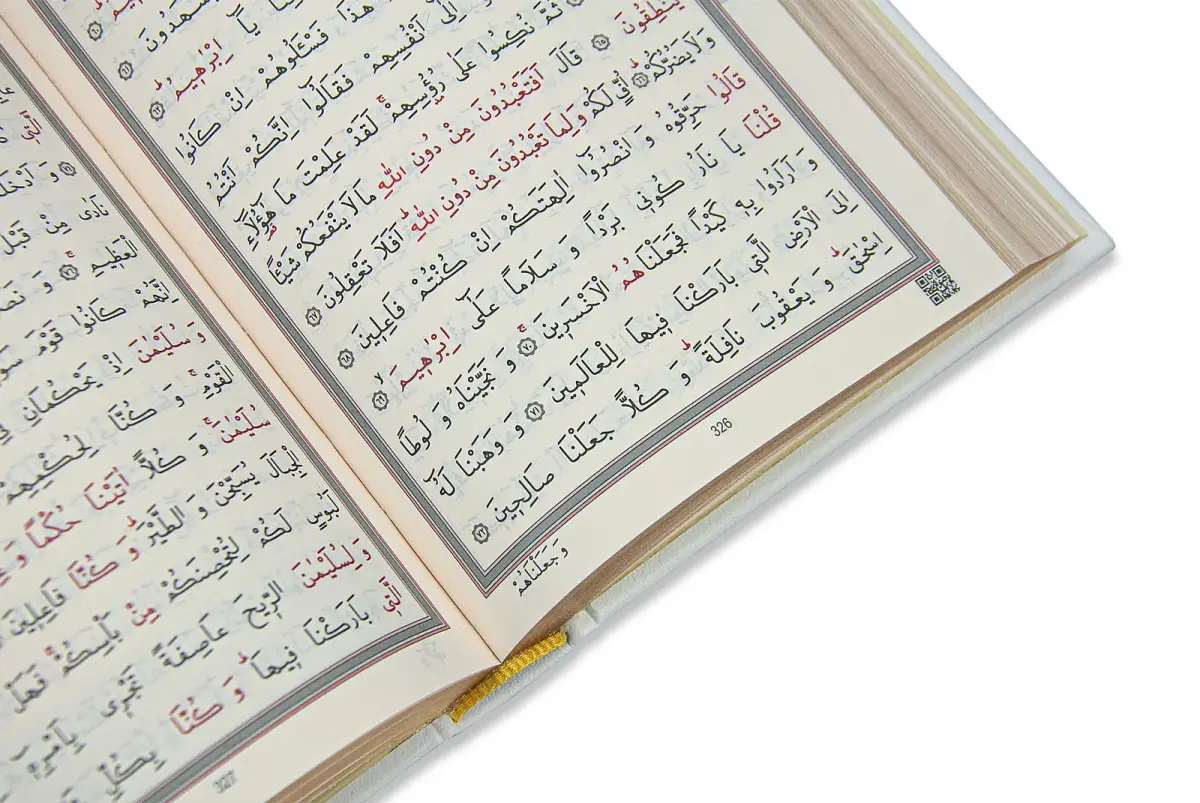 يَشْهَدُونَ ٦١
يَٓا اِبْرٰهِيمُ ٦٢
هٰذَا فَسْـَٔلُوهُمْ اِنْ كَانُوا
اِلٰٓى اَنْفُسِهِمْ فَقَالُٓوا اِنَّكُمْ اَنْتُمُ
ثُمَّ نُكِسُوا عَلٰى رُؤُسِهِمْۚ لَقَدْ عَلِمْتَ مَا هٰٓؤُلَٓاءِ
يَنْطِقُونَ ٦٥ قَالَ اَفَتَعْبُدُونَ مِنْ دُونِ اللّٰهِ مَا لَا يَنْفَعُكُمْ شَيْـًٔا
وَلَا يَضُرُّكُمْۜ ٦٦ اُفٍّ لَكُمْ وَلِمَا تَعْبُدُونَ مِنْ دُونِ اللّٰهِۜ اَفَلَا تَعْقِلُونَ ٦٧
قَالُوا حَرِّقُوهُ وَانْصُرُٓوا اٰلِهَتَكُمْ اِنْ كُنْتُمْ فَاعِلِينَ ٦٨
قُلْنَا يَا نَارُ كُونِى بَرْدًا وَسَلَامًا عَلٰٓى اِبْرٰهِيمَۙ ٦٩
وَاَرَادُوا بِهِ كَيْدًا فَجَعَلْنَاهُمُ الْاَخْسَرِينَۚ ٧٠ وَنَجَّيْنَاهُ وَلُوطًا
اِلَى الْاَرْضِ الَّتِى بَارَكْنَا فِيهَا لِلْعَالَمِينَ ٧١ وَوَهَبْنَا لَهُٓ
اِسْحٰقَۜ وَيَعْقُوبَ نَافِلَةًۜ وَكُلًّا جَعَلْنَا صَالِحِينَ ٧٢
وَجَعَلْنَاهُمْ
326
الَّتِى
وَاَدْخَلْنَا
نَادٰى مِنْ قَبْلُ
الْعَظِيمِۚ ٧٦ وَنَصَ
اِنَّهُمْ كَانُوا قَوْمَ سَوْ
وَسُلَيْمٰنَ اِذْ يَحْكُمَانِ فِى
الْقَوْمِۚ وَكُنَّا لِحُكْمِهِمْ
سُلَيْمٰنَۚ وَكُلًّا اٰتَيْنَا حُكْمًا وَ
الْجِبَالَ يُسَبِّحْنَ وَالطَّيْرَۜ وَكُنَّا فَاعِلِينَ
لَبُوسٍ لَكُمْ لِتُحْصِنَكُمْ مِنْ بَأْسِكُمْۚ فَهَلْ
وَلِسُلَيْمٰنَ الرِّيحَ عَاصِفَةً تَجْرِى بِاَمْرِ
الَّتِى بَارَكْنَا فِيهَاۜ وَكُنَّا بِكُلِّ
327